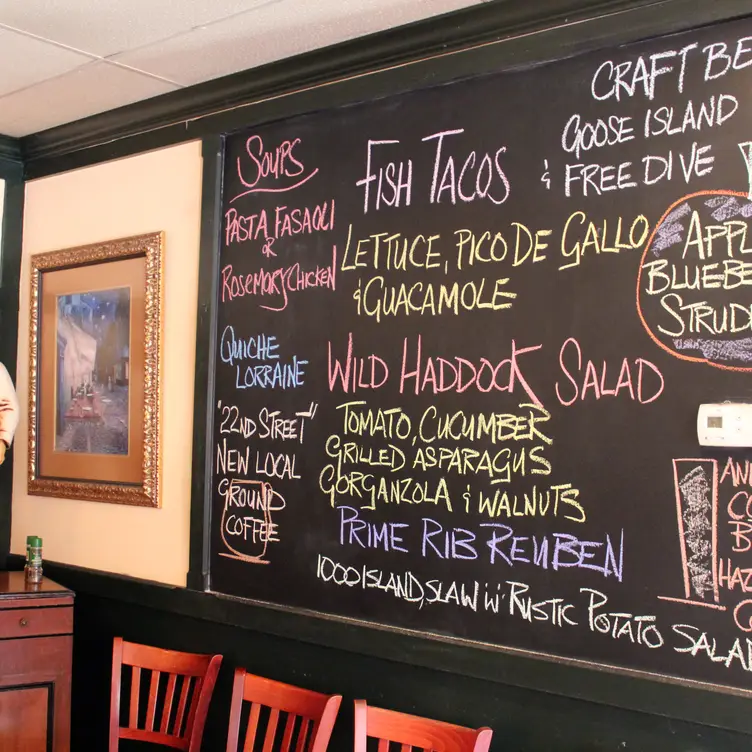 SOUPS
PASTA FASAOLI
OR
ROSEMARY CHICKEN
QUICHE
LORRAINE
"22ND STREET"
NEW LOCAL
GROUND
COFFEE
FISH TACOS
LETTUCE, PICO DE GALLO
& GUACAMOLE
WILD HADDOCK SALAD
TOMATO, CUCUMBER
GRILLED ASPARAGUS
GORGANZOLA & WALNUTS
PRIME RIB REUBEN
1000 ISLAND, SLAW W' RUSTIC POTATO SALA
CRAFT BE
GOOSE ISLAND
& FREE DIVE
APPL
BLUEBE
STRUD
AN
CO
B
HAZ
CO